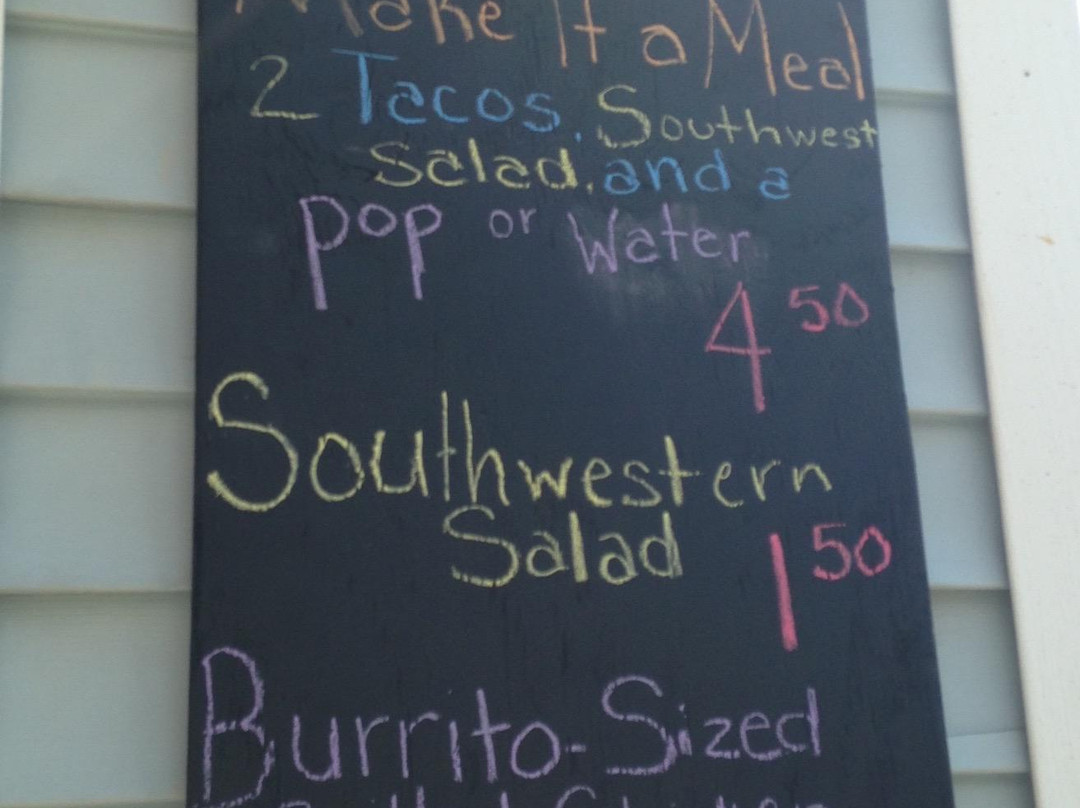 Make It a Meal
2 Tacos, Southwest
Salad, and a
Pop or Water
4 50
Southwestern
Salad 1 50
Burrito-Sized